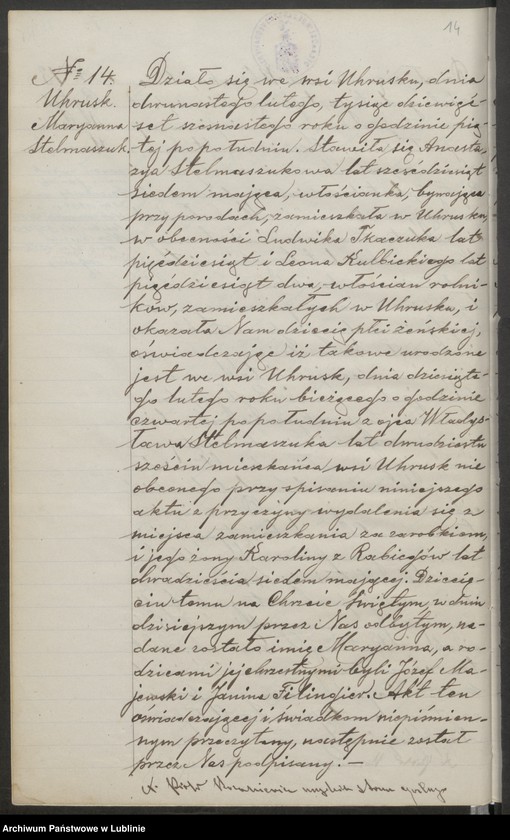 14
№ 14.
Uhrusk.
Maryanna
Stelmaszuk.
Działo się we wsi Uhrusku, dnia
dwunastego lutego, tysiąc dziewięć-
set szesnastego roku o godzinie pią-
tej popołudniu. Stawiła się Anasta-
zya Stelmaszukowa lat sześćdziesiąt
siedem mająca, włościanka, bywająca
przy porodach, zamieszkała w Uhrusku,
w obecności Ludwika Tkaczuka lat
pięćdziesiąt i Leona Kulbickiego lat
pięćdziesiąt dwa, włościan rolni-
ków, zamieszkałych w Uhrusku, i
okazała Nam dziecię płci żeńskiej,
oświadczając iż takowe urodzone
jest we wsi Uhrusk, dnia dziesiąte-
go lutego roku bieżącego o godzinie
czwartej popołudniu z ojca Władys-
ława Stelmaszuka lat dwudziestu
sześciu mieszkańca wsi Uhrusk nie
obecnego przy spisaniu niniejszego
aktu z przyczyny wydalenia się z
miejsca zamieszkania za zarobkiem,
i jego żony Karoliny z Rabiegów lat
dwadzieścia siedem mającej. Dziecię-
ciu temu na Chrzcie Świętym, w dniu
dzisiejszym przez Nas odbytym, na-
dane zostało imię Maryanna, a ro-
dzicami jej chrzestnymi byli Józef Ma-
jewski i Janina Filingier. Akt ten
oświadczającej i świadkom niepiśmien-
nym przeczytany, następnie został
przez Nas podpisany. —
X. Piotr
Archiwum Państwowe w Lublinie